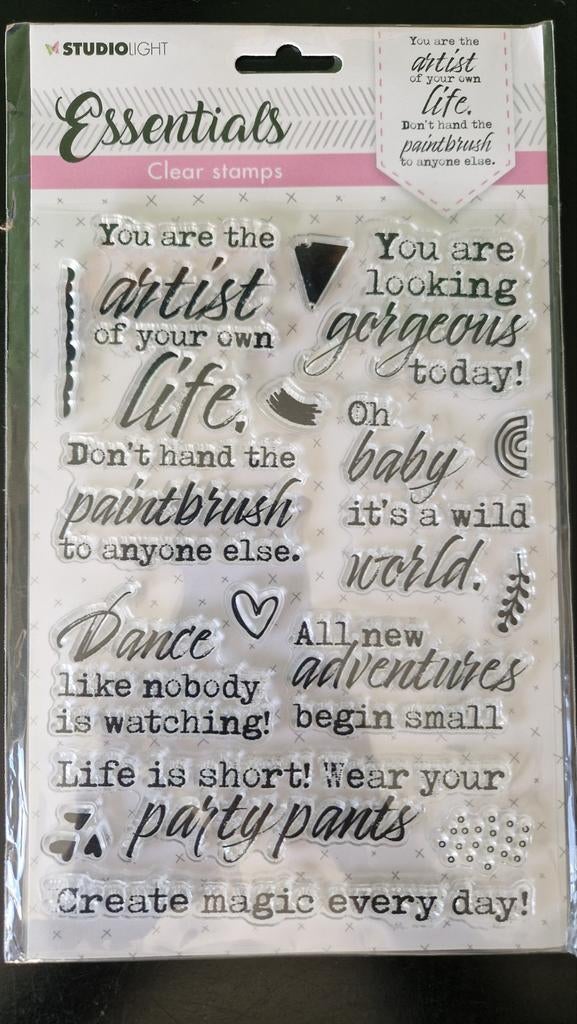 STUDIOLIGHT
Essentials
Clear stamps
You are the
artist
of your own
life.
Don't hand the
paintbrush
to anyone else.
You are the
artist
of your own
life.
Don't hand the
paintbrush
to anyone else.
You are
looking
gorgeous
today!
Oh
baby
it's a wild
world.
Dance
like nobody
is watching!
All new
adventures
begin small
Life is short! Wear your
party pants
Create magic every day!